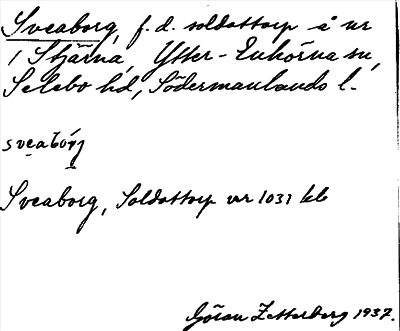 Sveaborg, f. d. soldattorp å nr
1 Stjärna, Ytter-Enhörna sn,
Selebo hd, Södermanlands l.
sveabórj
Sveaborg, Soldattorp nr 1031 kb
Göran Zetterberg 1937.